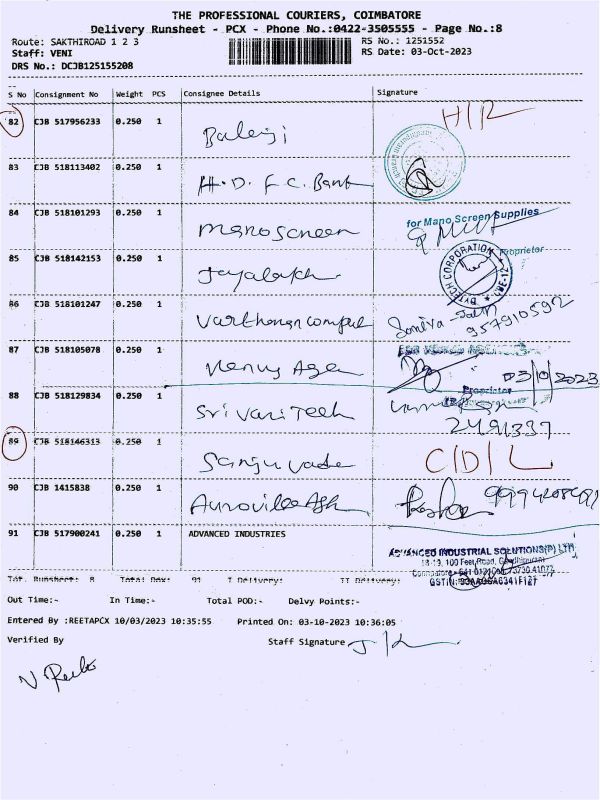 THE PROFESSIONAL COURIERS, COIMBATORE
Delivery Runsheet - PCX - Phone No.:0422-3505555 - Page No.:8
Route: SAKTHIROAD 1 2 3 RS No.: 1251552
Staff: VENI RS Date: 03-Oct-2023
DRS No.: DCJB125155208
S No Consignment No Weight PCS Consignee Details Signature
82 CJB 517956233 0.250 1 Balaji
83 CJB 518113402 0.250 1 H.D.F.C. Bank
84 CJB 518101293 0.250 1 Manoscreen
for Mano Screen Supplies
Proprietor
85 CJB 518142153 0.250 1
BYTECH CORPORATION
86 CJB 518101247 0.250 1
957910592
87 CJB 518105078 0.250 1 Venus Agen
03/10/2023
Proprietor
88 CJB 518129834 0.250 1 Sri Vari Tech
2491337
89 CJB 518146313 0.250 1 C/D/L
90 CJB 1415838 0.250 1
91 CJB 517900241 0.250 1 ADVANCED INDUSTRIES
ADVANCED INDUSTRIAL SOLUTIONS(P) LTD
100 Feet Road, Gandhipuram
Tot. Runsheet: 8 Total Dox: 91 I Delivery: II Delivery:
Out Time:- In Time:- Total POD:- Delvy Points:-
Entered By :REETAPCX 10/03/2023 10:35:55 Printed On: 03-10-2023 10:36:05
Verified By Staff Signature